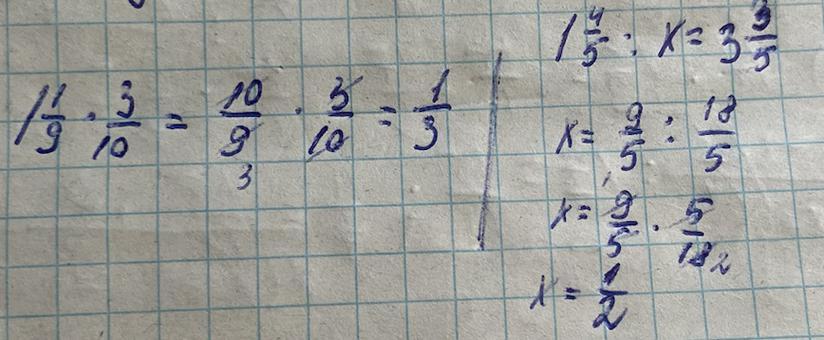 1 1/9 · 3/10 = 10/9 · 3/10 = 1/3
3
1 4/5 : x = 3 3/5
x = 9/5 : 18/5
x = 9/5 · 5/18 2
x = 1/2